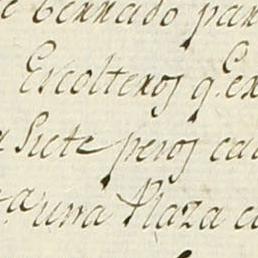 e bennado par
Escolteros q. ex
Siete pesos ca
una Plaza c